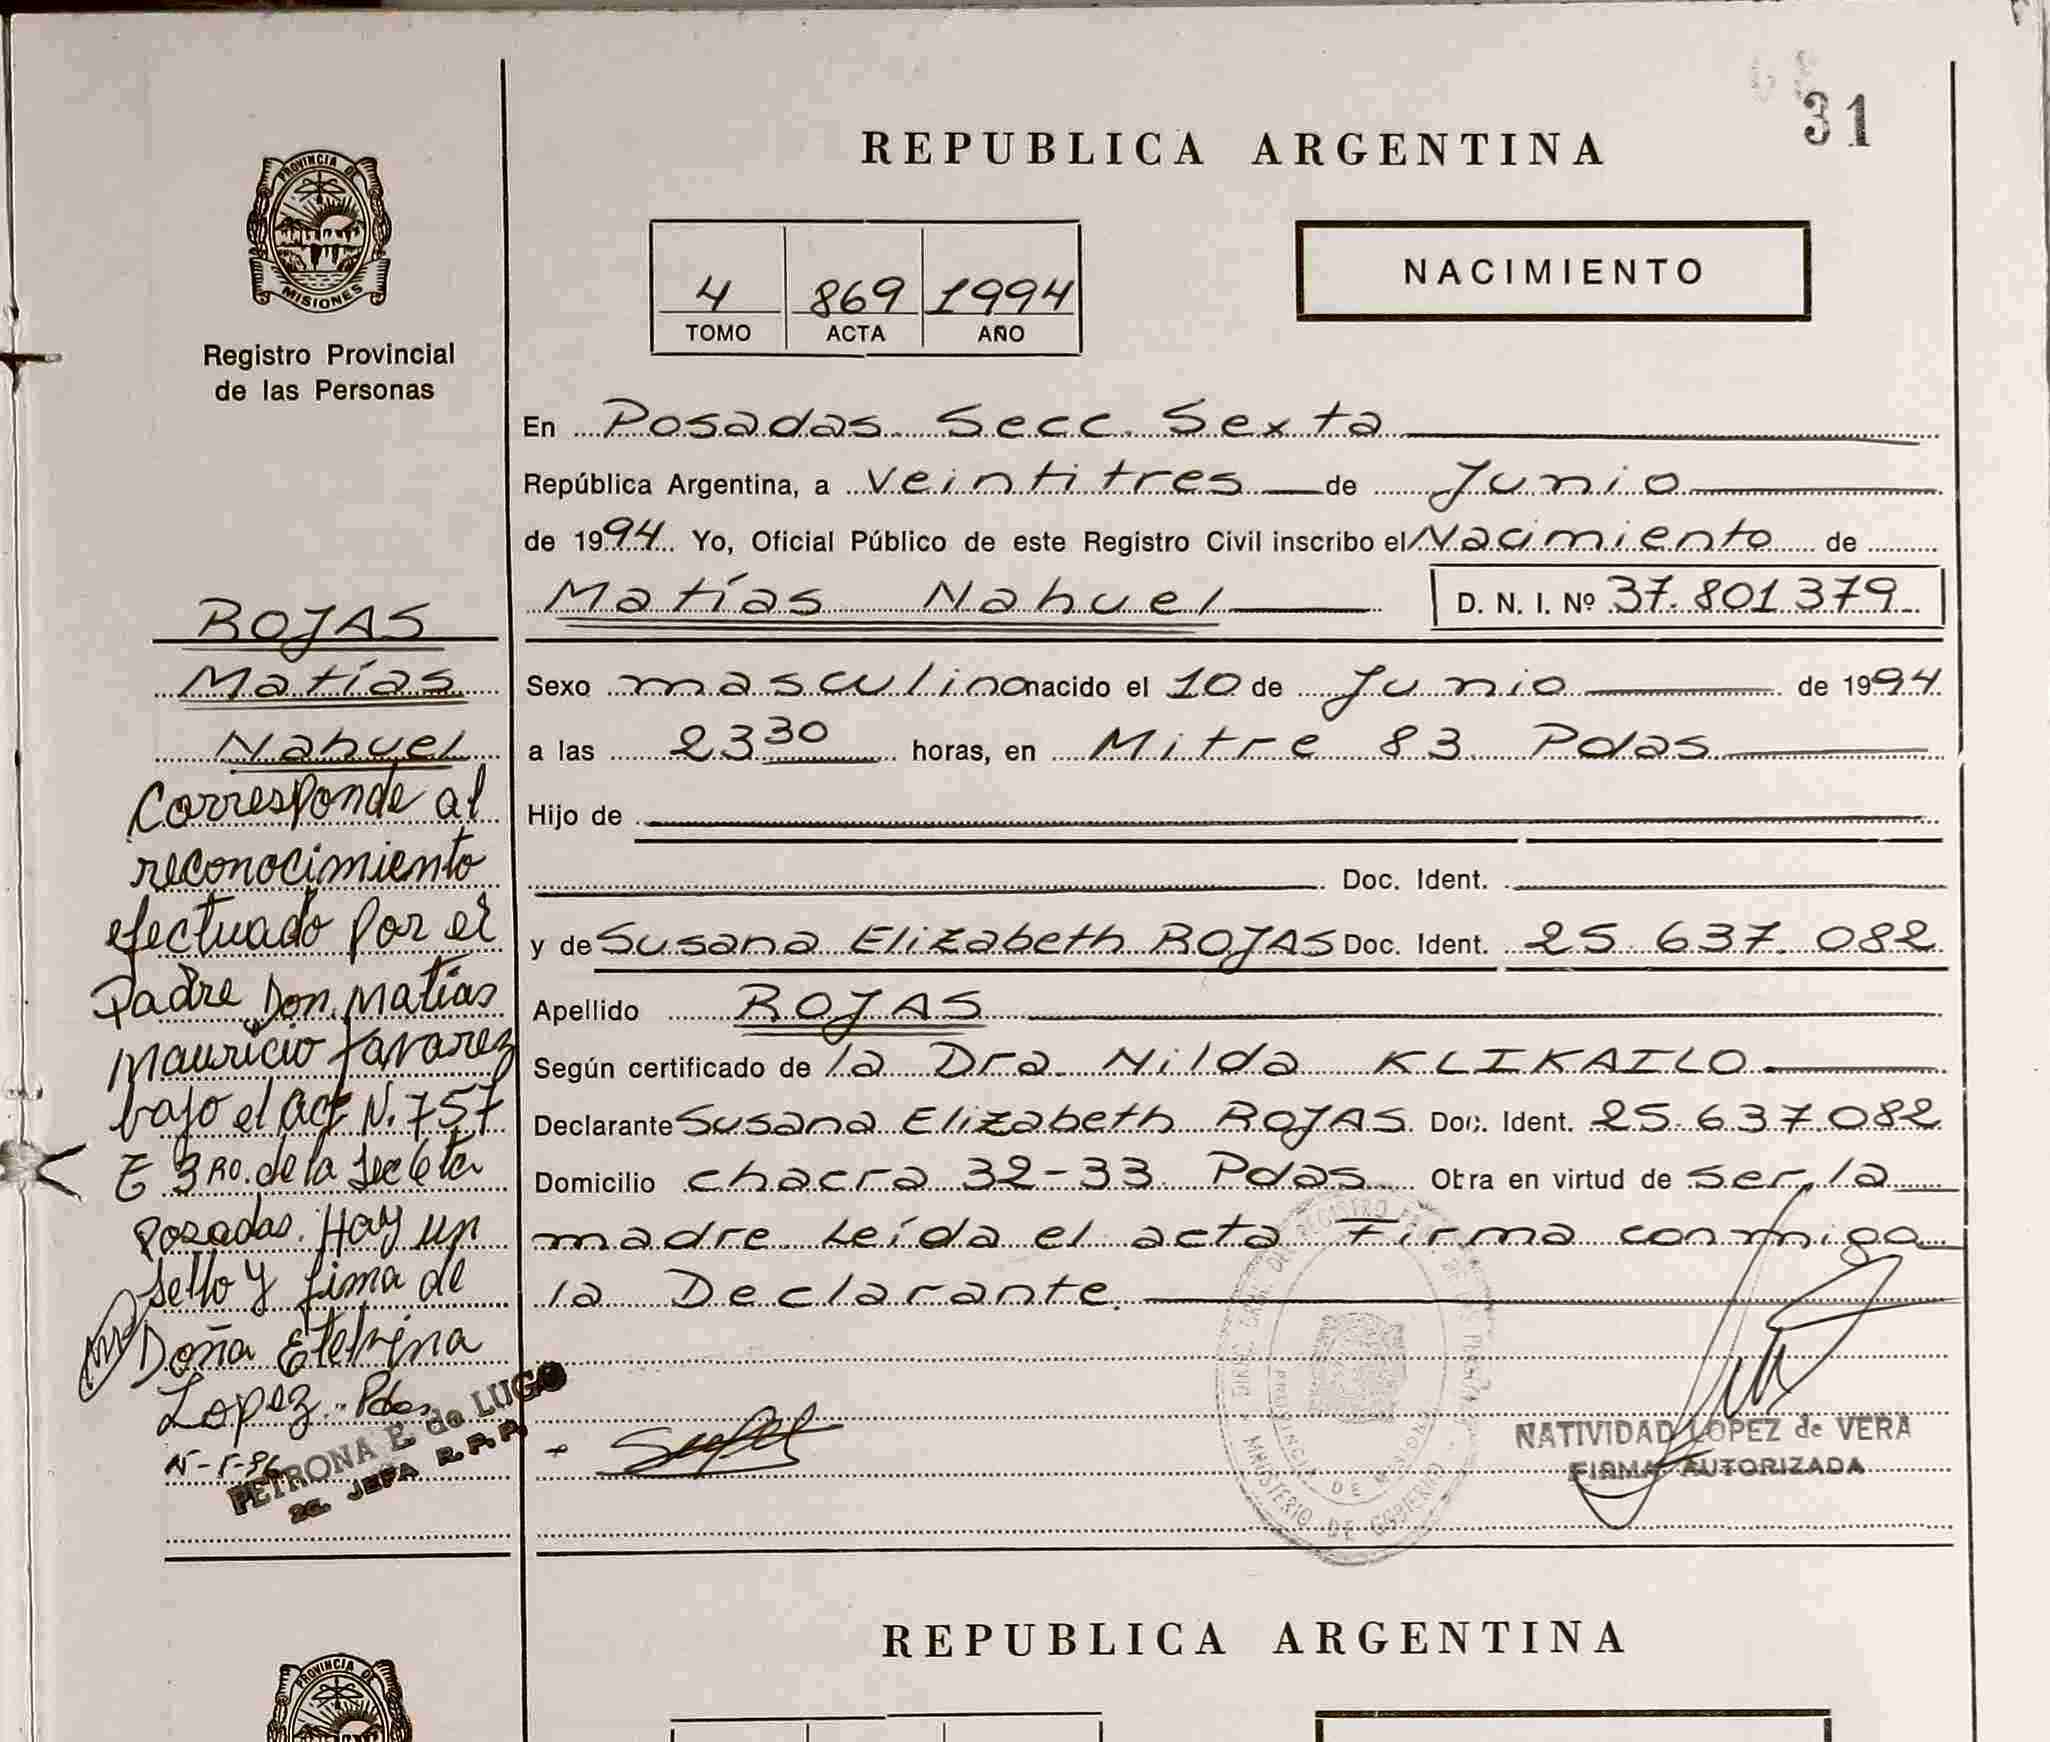 31
REPUBLICA ARGENTINA
PROVINCIA DE
MISIONES
Registro Provincial
de las Personas
4 869 1994
TOMO ACTA AÑO
NACIMIENTO
En Posadas Secc. Sexta
República Argentina, a veintitres de Junio
de 1994. Yo, Oficial Público de este Registro Civil inscribo el Nacimiento de
Matías Nahuel D. N. I. Nº 37.801379
Sexo masculino nacido el 10 de Junio de 1994
a las 23 30 horas, en Mitre 83 Pdas
Hijo de
Doc. Ident.
y de Susana Elizabeth ROJAS Doc. Ident. 25.637.082
Apellido ROJAS
Según certificado de la Dra Nilda KLIKAILO
Declarante Susana Elizabeth ROJAS Doc. Ident. 25.637.082
Domicilio chacra 32-33 Pdas Obra en virtud de ser la
madre Leída el acta Firma conmigo
la Declarante.
NATIVIDAD LOPEZ de VERA
FIRMA AUTORIZADA
MINISTERIO DE GOBIERNO
PROVINCIA DE MISIONES
ROJAS
Matías
Nahuel
Corresponde al
reconocimiento
efectuado por el
Padre Don Matias
Mauricio Tavarez
bajo el act N. 757
T 3RO. de la Sec 6ta
Posadas. Hay un
sello y firma de
Doña Etelvina
Lopez. Pdas
PETRONA E. de LUGO
2a. JEFA R.P.P.
REPUBLICA ARGENTINA
PROVINCIA DE